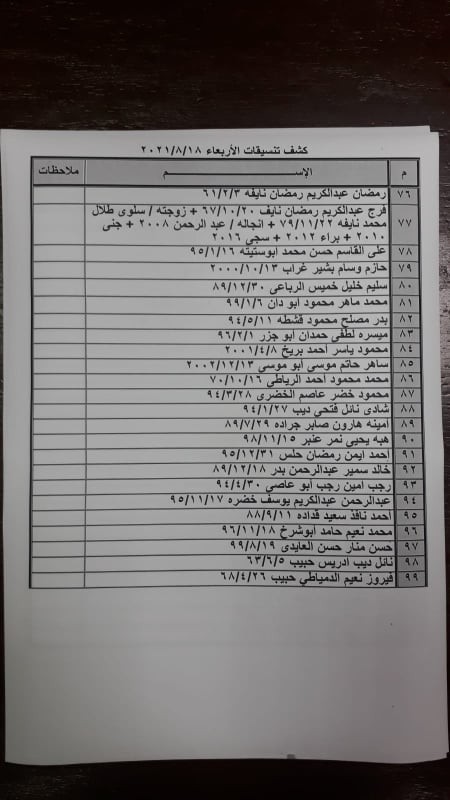 كشف تنسيقات الأربعاء ٢٠٢١/٨/١٨
م الإســـم ملاحظات
٧٦ رمضان عبدالكريم رمضان نايفه ٦١/٢/٣
٧٧ فرج عبدالكريم رمضان نايف ٦٧/١٠/٢٠ + زوجته / سلوى طلال
محمد نايفه ٧٩/١١/٢٢ + انجاله / عبد الرحمن ٢٠٠٨ + جنى
٢٠١٠ + براء ٢٠١٢ + سجى ٢٠١٦
٧٨ على القاسم حسن محمد ابوستيته ٩٥/١/١٦
٧٩ حازم وسام بشير غراب ٢٠٠٠/١٠/١٣
٨٠ سليم خليل خميس الرباعى ٨٩/١٢/٣٠
٨١ محمد ماهر محمود ابو دان ٩٩/١/٦
٨٢ بدر مصلح محمود قشطه ٩٤/٥/١١
٨٣ ميسره لطفى حمدان ابو جزر ٩٦/٢/١
٨٤ محمود ياسر احمد بريخ ٢٠٠١/٤/٨
٨٥ ساهر حاتم موسى ابو موسى ٢٠٠٢/١٢/١٣
٨٦ محمد محمود احمد الرياطى ٧٠/١٠/١٦
٨٧ محمود خضر عاصم الخضرى ٩٤/٣/٢٨
٨٨ شادى نائل فتحى ديب ٩٤/١/٢٧
٨٩ امينه هارون صابر جراده ٨٩/٧/٢٩
٩٠ هبه يحيى نمر عنبر ٩٨/١١/١٥
٩١ احمد ايمن رمضان حلس ٩٥/١٢/٣١
٩٢ خالد سمير عبدالرحمن بدر ٨٩/١٢/١٨
٩٣ رجب امين رجب ابو عاصى ٩٤/٤/٣٠
٩٤ عبدالرحمن عبدالكريم يوسف خضره ٩٥/١١/١٧
٩٥ احمد نافذ سعيد قداده ٨٨/٩/١١
٩٦ محمد نعيم حامد ابوشرخ ٩٦/١١/١٨
٩٧ حسن منار حسن العايدى ٩٩/٨/١٩
٩٨ نائل ديب ادريس حبيب ٦٣/٦/٥
٩٩ فيروز نعيم الدمياطي حبيب ٦٨/٤/٢٦